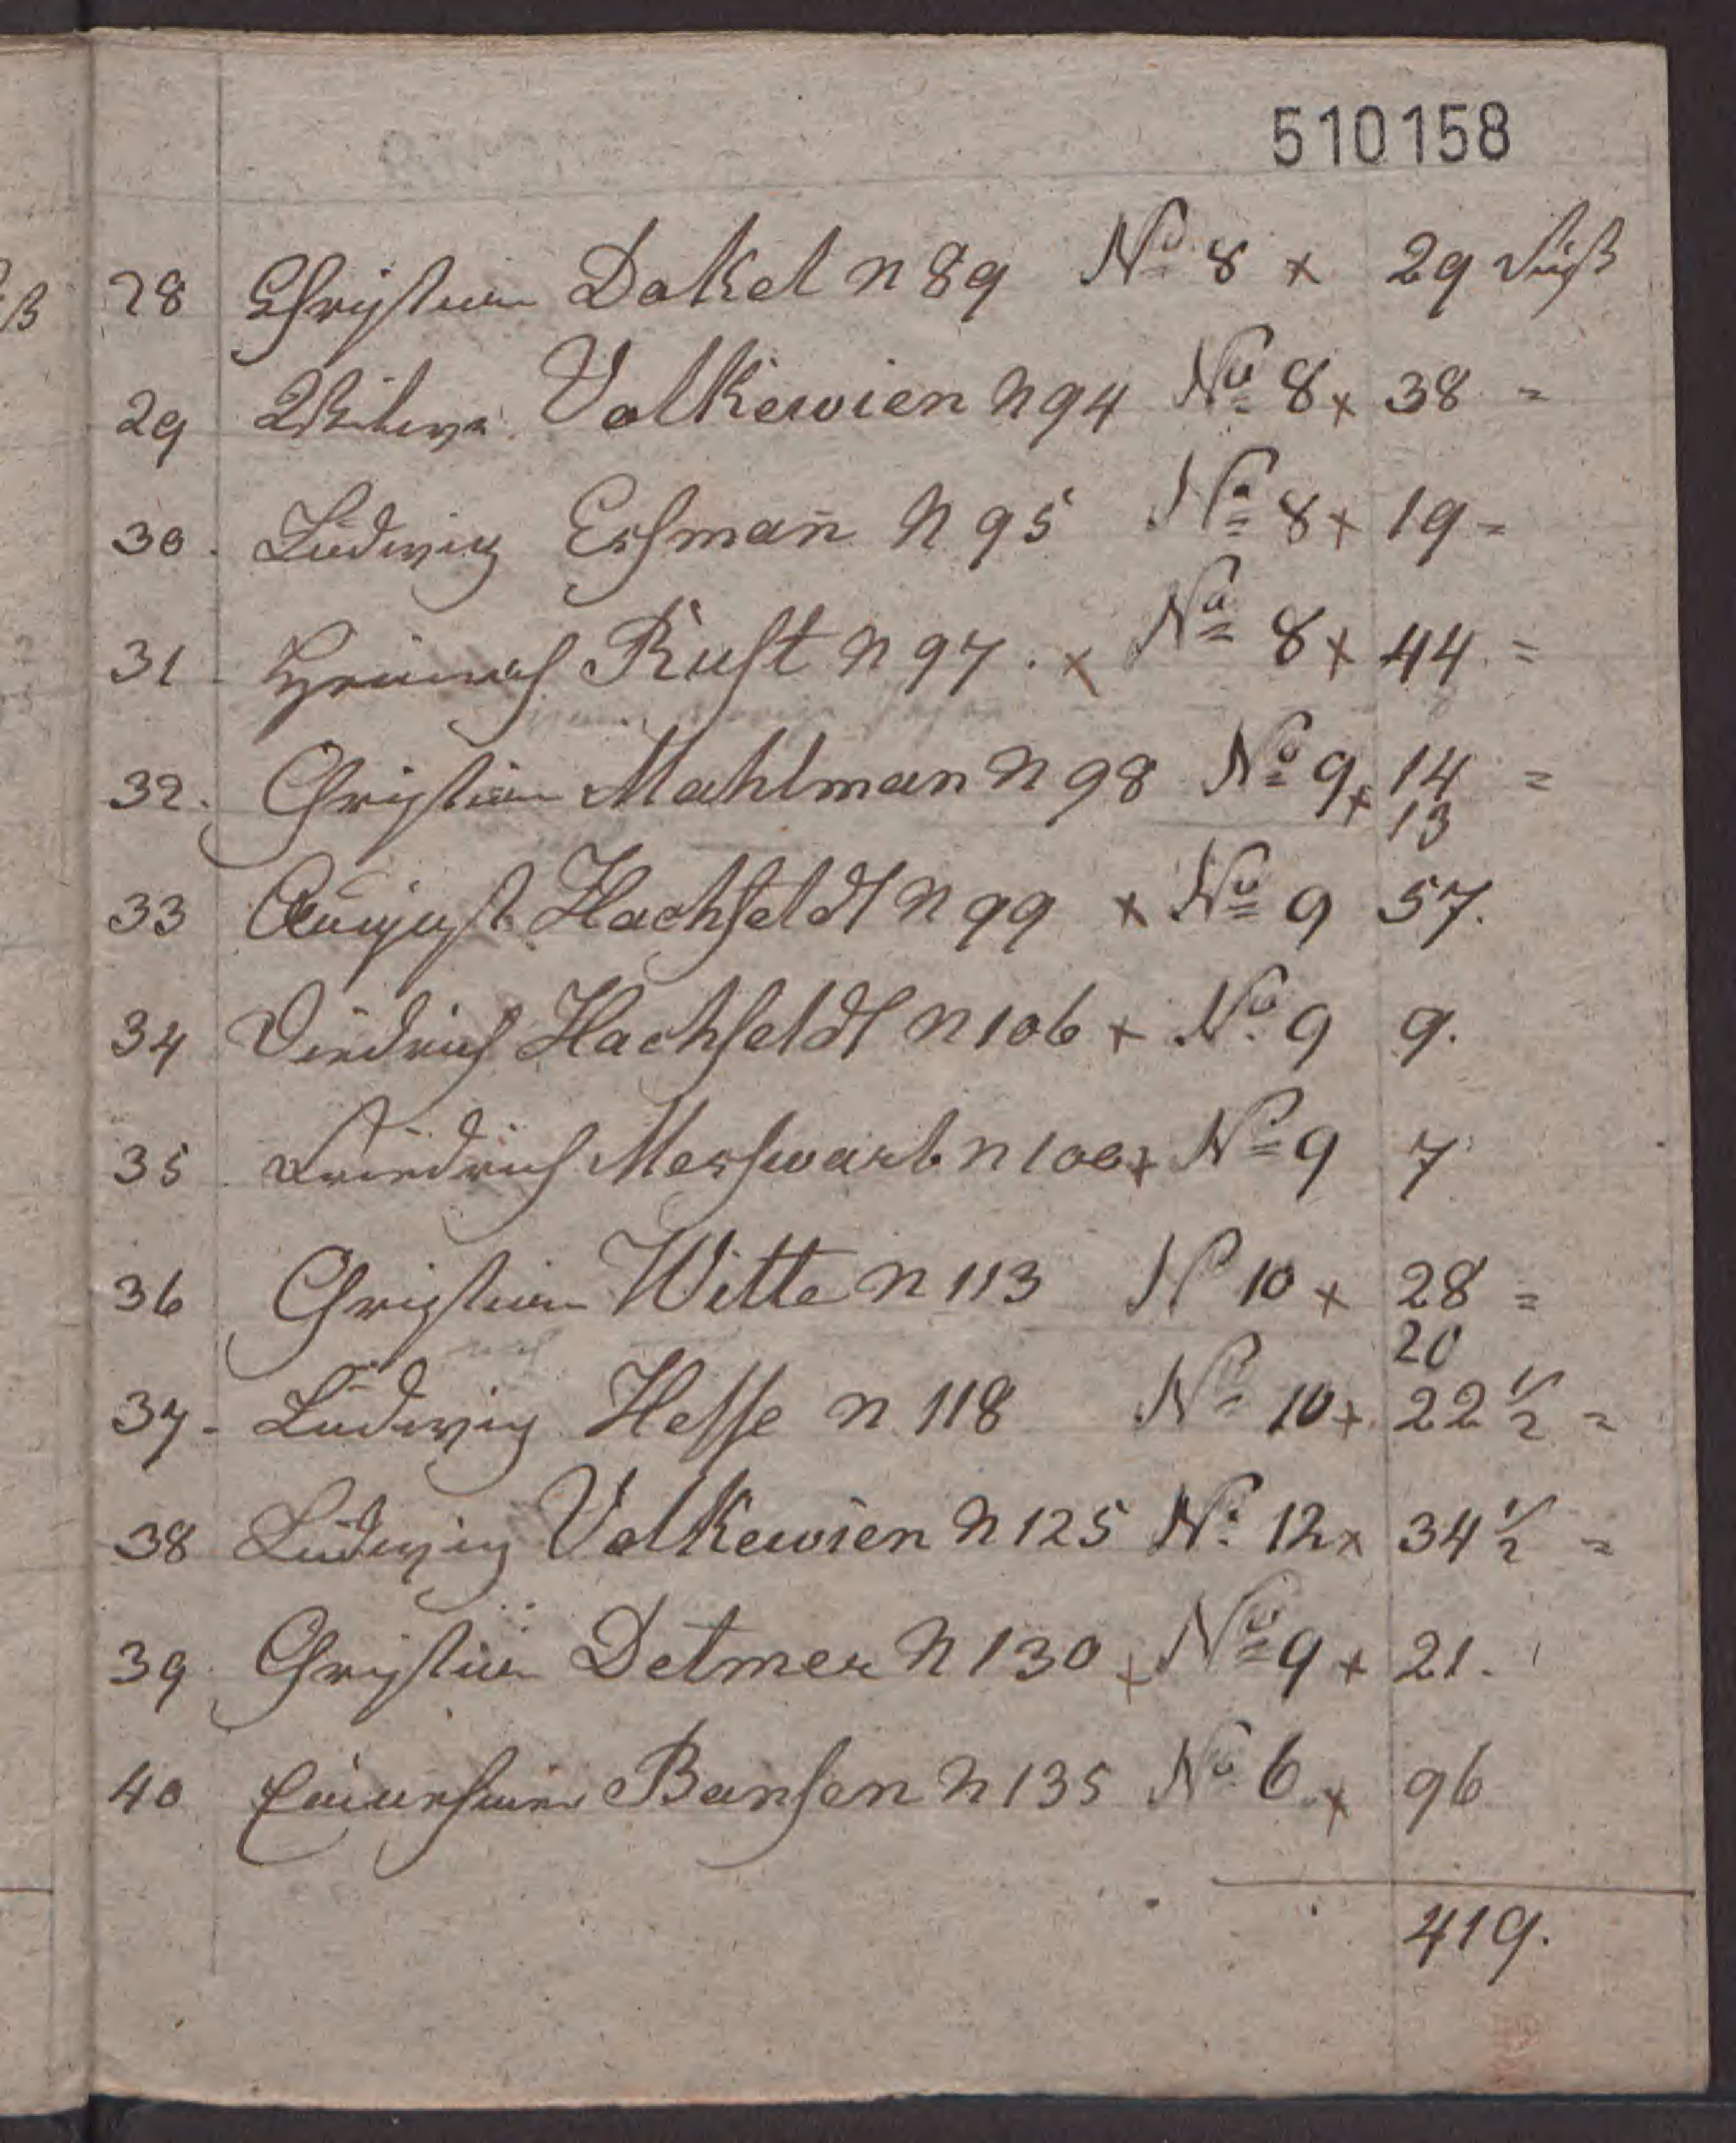 510158
28 Christian Dökel n 89 No 8 x 29 Fuß
29 Witwe Volkewien n 94 No 8 x 38 =
30. Ludwig Eshmañ n 95 No 8 x 19 =
31 Heinrich Rust n 97. x No 8 x 44. =
32. Christian Mahlman n 98 No 9 x 14 =
13
33 August Hachfeldt n 99 x No 9 57.
34 Diedrich Hachfeldt n 106 x No 9 9.
35 Friedrich Meshwarb n 100 x No 9 7
36 Christian Witte n 113 N 10 x 28 =
20
37. Ludwig Hesse n 118 No 10 x 22 1/2 =
38 Ludwig Volkewien n 125 No 12 x 34 1/2 =
39 Christian Detmer n 130 x No 9 x 21.
40 Bansen n 135 No 6 x 96
419.